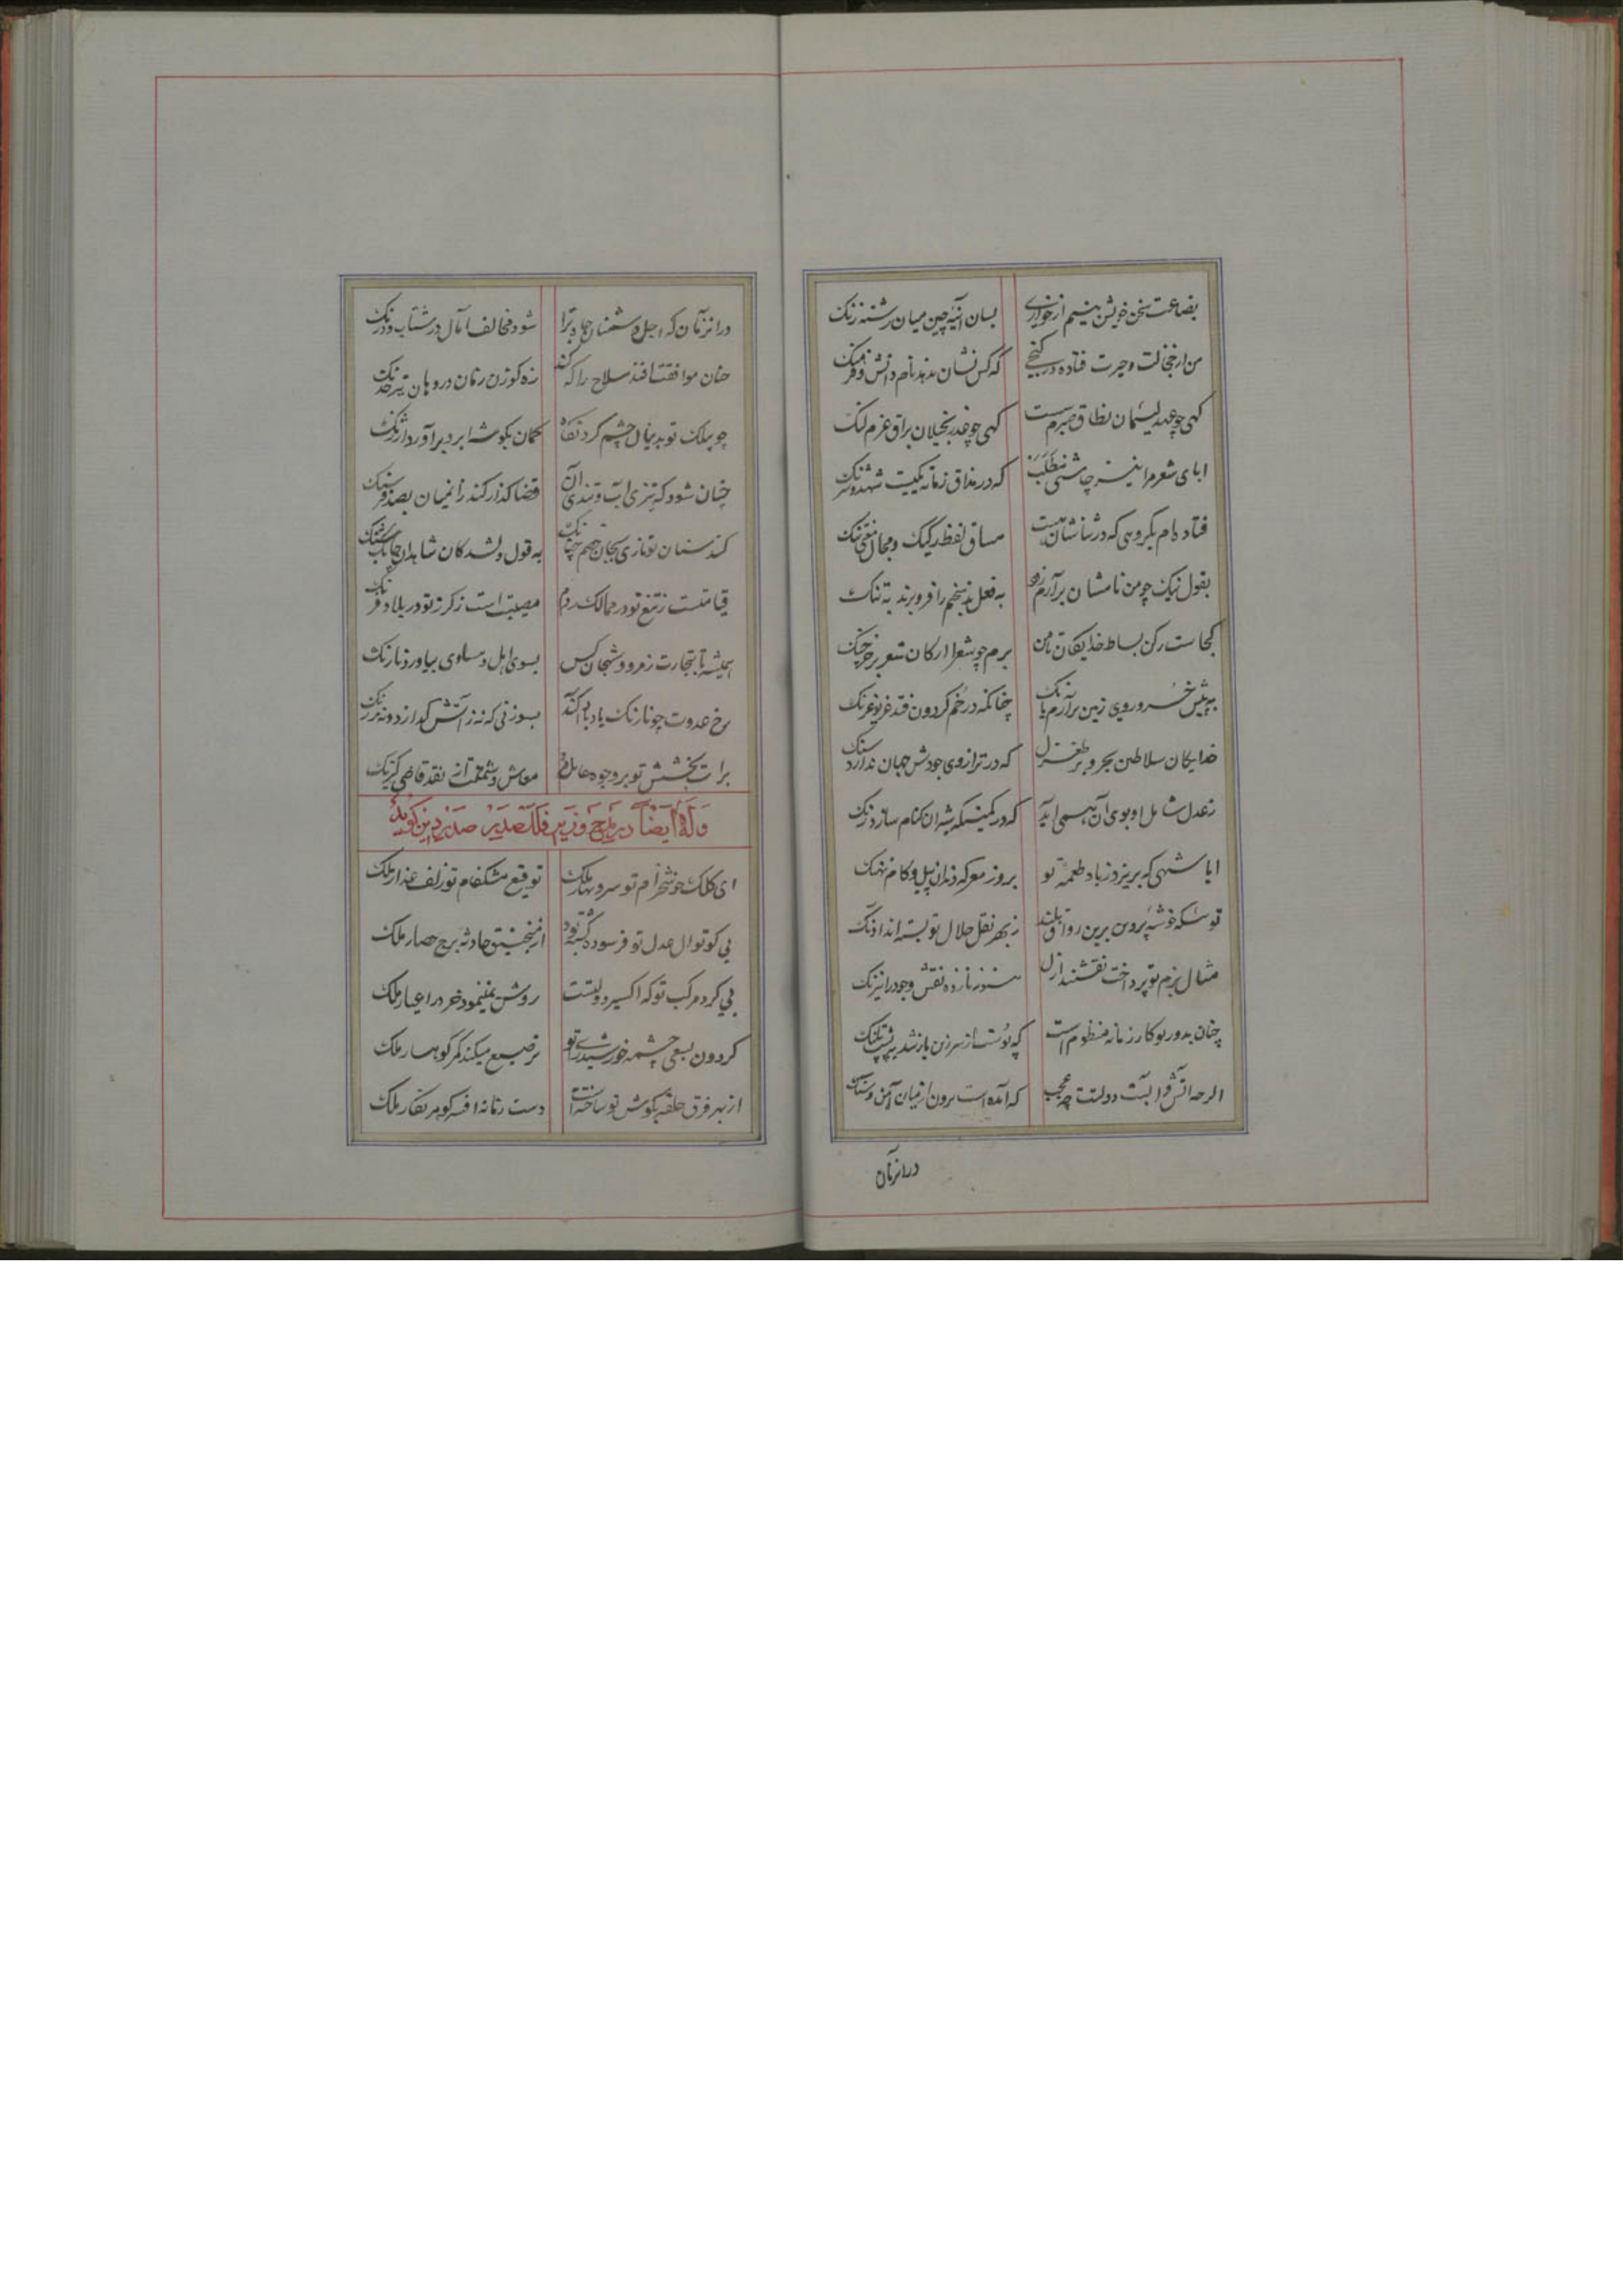 بضاعت سخن خویش بینم از خواری بسان آینه چین میان رشته زنک
من از خجالت و حیرت فتاده در کنجی که کس نشان ندهد نام دانش و فرهنک
کهی چو عهد لئیمان نطاق صبرم سست کهی چو عذر بخیلان براق عزم لنک
ابای شعر مرا نیست چاشنی مطلب که در مذاق زمانه یکیست شهد و شرنک
فتاده ام بکروهی که در شانشان نیست مساق لفظ رکیک و مجال معنی تنک
بقول نیک چو من نامشان برآرم زود به فعل بد سخنم را فرو برند به تنک
کجاست رکن بساط خدایکان تا من برم چو شعرا ارکان شعر بر خرچنک
به پیش خسرو روی زمین برآرم بانک چنانکه در خم کردون فتد غریو غرنک
خدایکان سلاطین بحر و بر طغرل که در ترازوی جودش جهان ندارد سنک
ز عدل شامل او بوی آن همی اید که در کمینکه شیران کنام سازد رنک
ایا شهی که بریزد زباد طعمه تو بروز معرکه دندان پیل و کام نهنک
تویی که خوشه پروین برین رواق بلند ز بهر نقل جلال تو بسته اند اونک
مثال بزم تو پرداخت نقشبند ازل هنوز نازده نقش وجود را نیرنک
چنان بدور تو کار زمانه منظوم است که پوست از سر زین باز شد به پشت پلنک
اگرچه آتش و آبست دولتت چه عجب که آمده است برون از میان آهن و سنک
در انزمان
در انزمان که اجل دشمنان جاه ترا شود مخالف آمال در شتاب و درنک
چنان موافقت افتد سلاح را که کند زه کوزن زنان در دهان تیر خدنک
چو پیلک تو بدنبال چشم کرد نکاه کمان بکوشه ابرو برآورد آژنک
چنان شود که ز تیزی آب و تندی آن قضا گذار کند زانمیان بصد فرسنک
کند سنان تو بازی بجان خصم چنانک به قول دلشدکان شاهدان چابک شنک
قیامتست ز تیغ تو در ممالک روم مصیبت است ز گرز تو در بلاد فرنک
همیشه تا بتجارت ز مرو و شهجان کس بسوی اهل دساوی نیاورد نارنک
رخ عدوت چو نارنک باد با آکند بسوزنی که نه زاتش گدازد و نه ز رنک
برات بخشش تو بر وجوه عامل رم معاش دشمنت از نقد قاضی گیرنک
وله ایضا در مدح وزیر فلک صدیر صدر دین کوید
ای کلک خوشخرام تو سرو بهار ملک توقیع مشکفام تو زلف عذار ملک
بی کوتوال عدل تو فرسوده کشته بود از منجنیق حادثه برج حصار ملک
بی کرد مرکب تو که اکسیر دولتست روشن نمینمود خرد را عیار ملک
کردون بسعی چشمه خورشید رای تو ترصیع میکند کمر کوهسار ملک
از بهر فرق حلقه بکوش تو ساخته است دست زمانه افسر کوهر نکار ملک